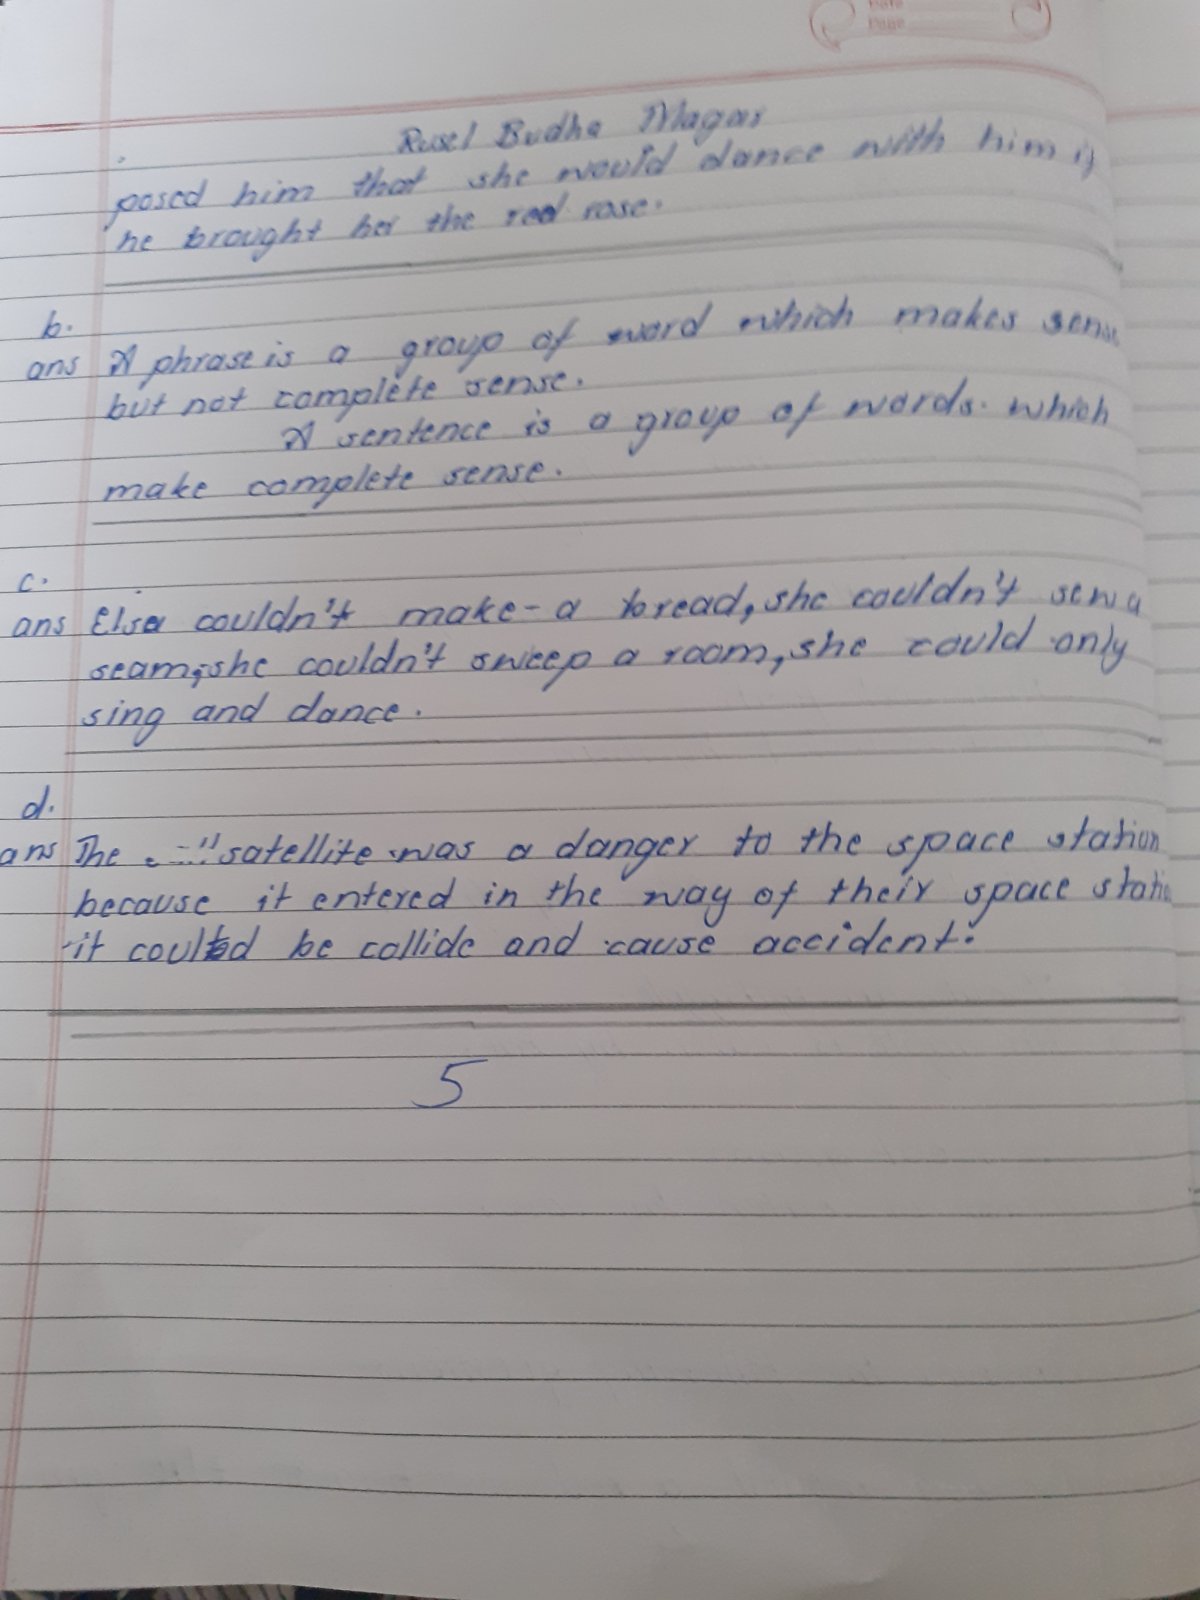 Date
Page
Rusel Budha Magar
posed him that she would dance with him if
he brought her the red rose.
b.
ans A phrase is a group of word which makes sense
but not complete sense.
A sentence is a group of words. which
make complete sense.
c.
ans Elsa couldn't make a bread, she couldn't sew a
seam, she couldn't sweep a room, she could only
sing and dance.
d.
ans The satellite was a danger to the space station
because it entered in the way of their space statio
it could be collide and cause accident.
5